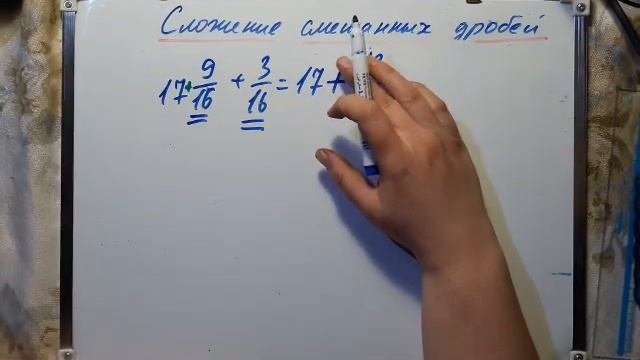 Сложение смешанных дробей
17 9/16 + 3/16 = 17 +